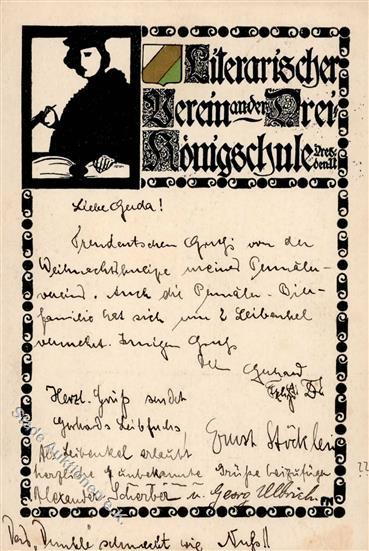 Literarischer
Verein an der Drei-
Königschule Dres-
den N
Liebe Gerda!
Gruß von der
Weihnachtskneipe meines Pennäler-
vereins. Auch die Pennäler-
familie hat sich um 2 Leibenkel
vermehrt. Innigen Gruß
Dein Gerhard
Herzl. Gruß sendet
Gerhards Leibfuchs
Ernst Stöcklein
Als Leibenkel erlaubt
herzliche unbekannte Grüße beizufügen
Alexander u. Georg Ullrich.
Das "Dunkle" schmeckt wie Nuß!!